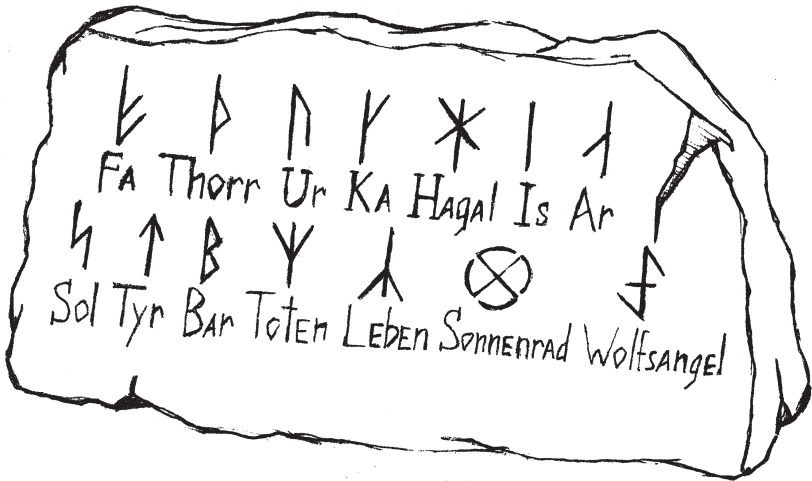 ᚠ ᚦ ᚢ ᚴ ᚼ ᛁ ᛅ
Fa Thorr Ur Ka Hagal Is Ar
ᛋ ᛏ ᛒ ᛉ ᛦ
Sol Tyr Bar Toten Leben Sonnenrad Wolfsangel